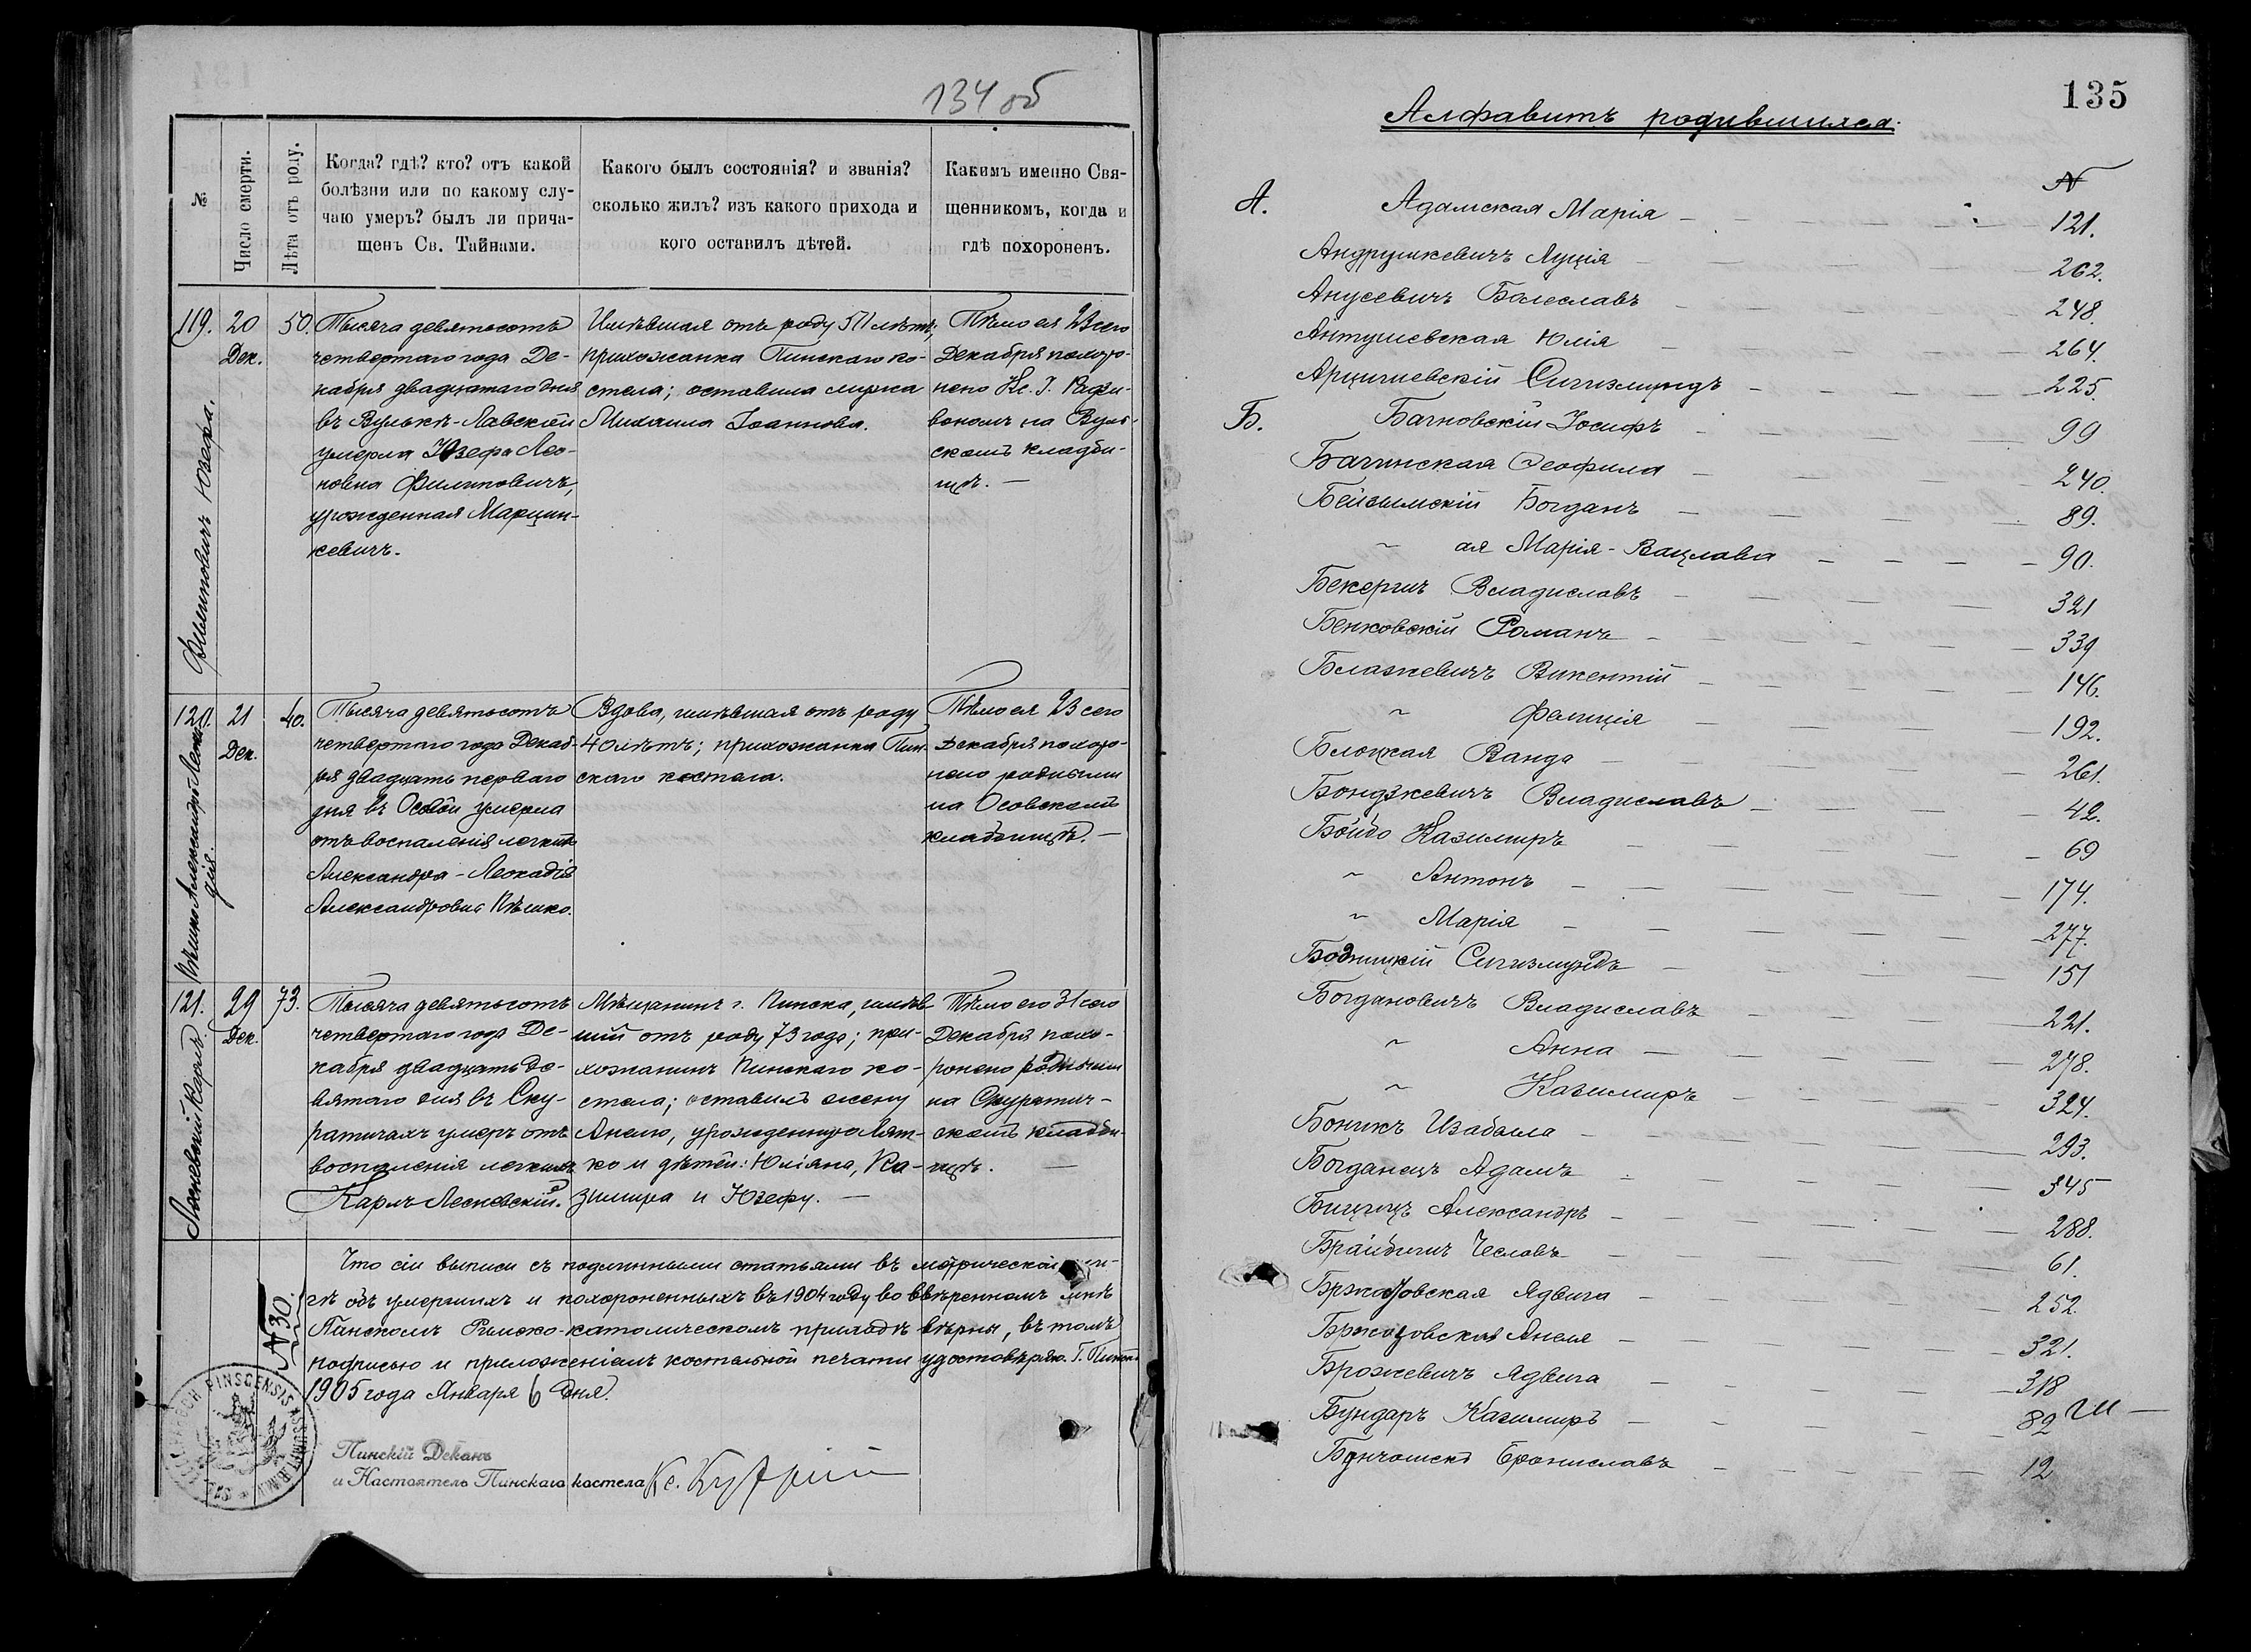 134 об
№
Число смерти.
Лѣта отъ роду.
Когда? гдѣ? кто? отъ какой
болѣзни или по какому слу-
чаю умеръ? былъ ли прича-
щенъ Св. Тайнами.
Какого былъ состоянія? и званія?
сколько жилъ? изъ какого прихода и
кого оставилъ дѣтей.
Какимъ именно Свя-
щенникомъ, когда и
гдѣ похороненъ.
119.
Филиповичъ Юзефа.
20
Дек.
50.
Тысяча девятьсотъ
четвертаго года Де-
кабря двадцатаго дня
въ Вулькѣ-Лавской
умерла Юзефа Лео-
новна Филиповичъ,
урожденная Марцин-
кевичъ.
Имѣвшая отъ роду 50 лѣтъ;
прихожанка Пинскаго ко-
стела; оставила мужа
Михаила Іоаннова.
Тѣло ея 23 сего
Декабря похоро-
нено Кс. І.
на Вуль-
скомъ кладби-
щѣ. —
120.
Александра Леока-
дія.
21
Дек.
40.
Тысяча девятьсотъ
четвертаго года Декаб-
ря двадцать перваго
дня въ Особои умерла
отъ воспаленія легкихъ
Александра-Леокадія
Александровна Пѣшко.
Вдова, имѣвшая отъ роду
40 лѣтъ; прихожанка Пин-
скаго костела.
Тѣло ея 23 сего
Декабря похоро-
нено родными
на Осовскомъ
кладбищѣ. —
121.
Лесневскій Карлъ.
29
Дек.
73.
Тысяча девятьсотъ
четвертаго года Де-
кабря двадцать де-
вятаго дня въ Ску-
ратичахъ умеръ отъ
воспаленія легкихъ
Карлъ Лесневскій.
Мѣщанинъ г. Пинска, имѣв
шій отъ роду 73 года; при-
хожанинъ Пинскаго ко-
стела; оставилъ жену
Анелю, урожденную Лят-
ко и дѣтей: Юліяна, Ка-
зимира и Юзефу. —
Тѣло его 31 сего
Декабря похо-
ронено родными
на Скуратич-
скомъ кладби-
щѣ. —
№ 30.
Что сіи выписи съ подлинными статьями въ метрической кни-
гѣ объ умершихъ и похороненныхъ въ 1904 году во ввѣренномъ мнѣ
Пинскомъ Римско-католическомъ приходѣ вѣрны, въ томъ
подписью и приложеніемъ костельной печати удостовѣряю. Г. Пинскъ
1905 года Января 6 дня.
Пинскій Деканъ
и Настоятель Пинскаго костела Кс.
135
Алфавитъ родившихся.
№
А. Адамская Марія — 121.
Андрушкевичъ Луція — 262.
Анусевичъ Болеславъ — 248.
Антушевская Юлія — 264.
Арцишевскій Сигизмундъ — 225.
Б. Бачновскій Іосифъ — 99
Бачинская Теофила — 240.
Бейзымскій Богданъ — 89.
~ ая Марія-Вацлава — 90.
Бекеричъ Владиславъ — 321
Бенковскій Романъ — 339
Блажевичъ Викентій — 146.
~ Фелиція — 192.
Блоцкая Ванда — 261.
Бондзкевичъ Владиславъ — 42.
Бойдо Казимиръ — 69
~ Антонъ — 174.
~ Марія — 277.
Бодницкій Сигизмундъ — 151
Богдановичъ Владиславъ — 221.
~ Анна — 278.
~ Казимиръ — 324.
Боникъ Изабела — 293.
Богданецъ Адамъ — 345
Александръ — 288.
Брайбишъ Чеславъ — 61.
Бржозовская Ядвига — 252.
Бржозовская Анеля — 321.
Брожевичъ Ядвига — 318
Бундаръ Казимиръ — 82
Брониславъ — 12